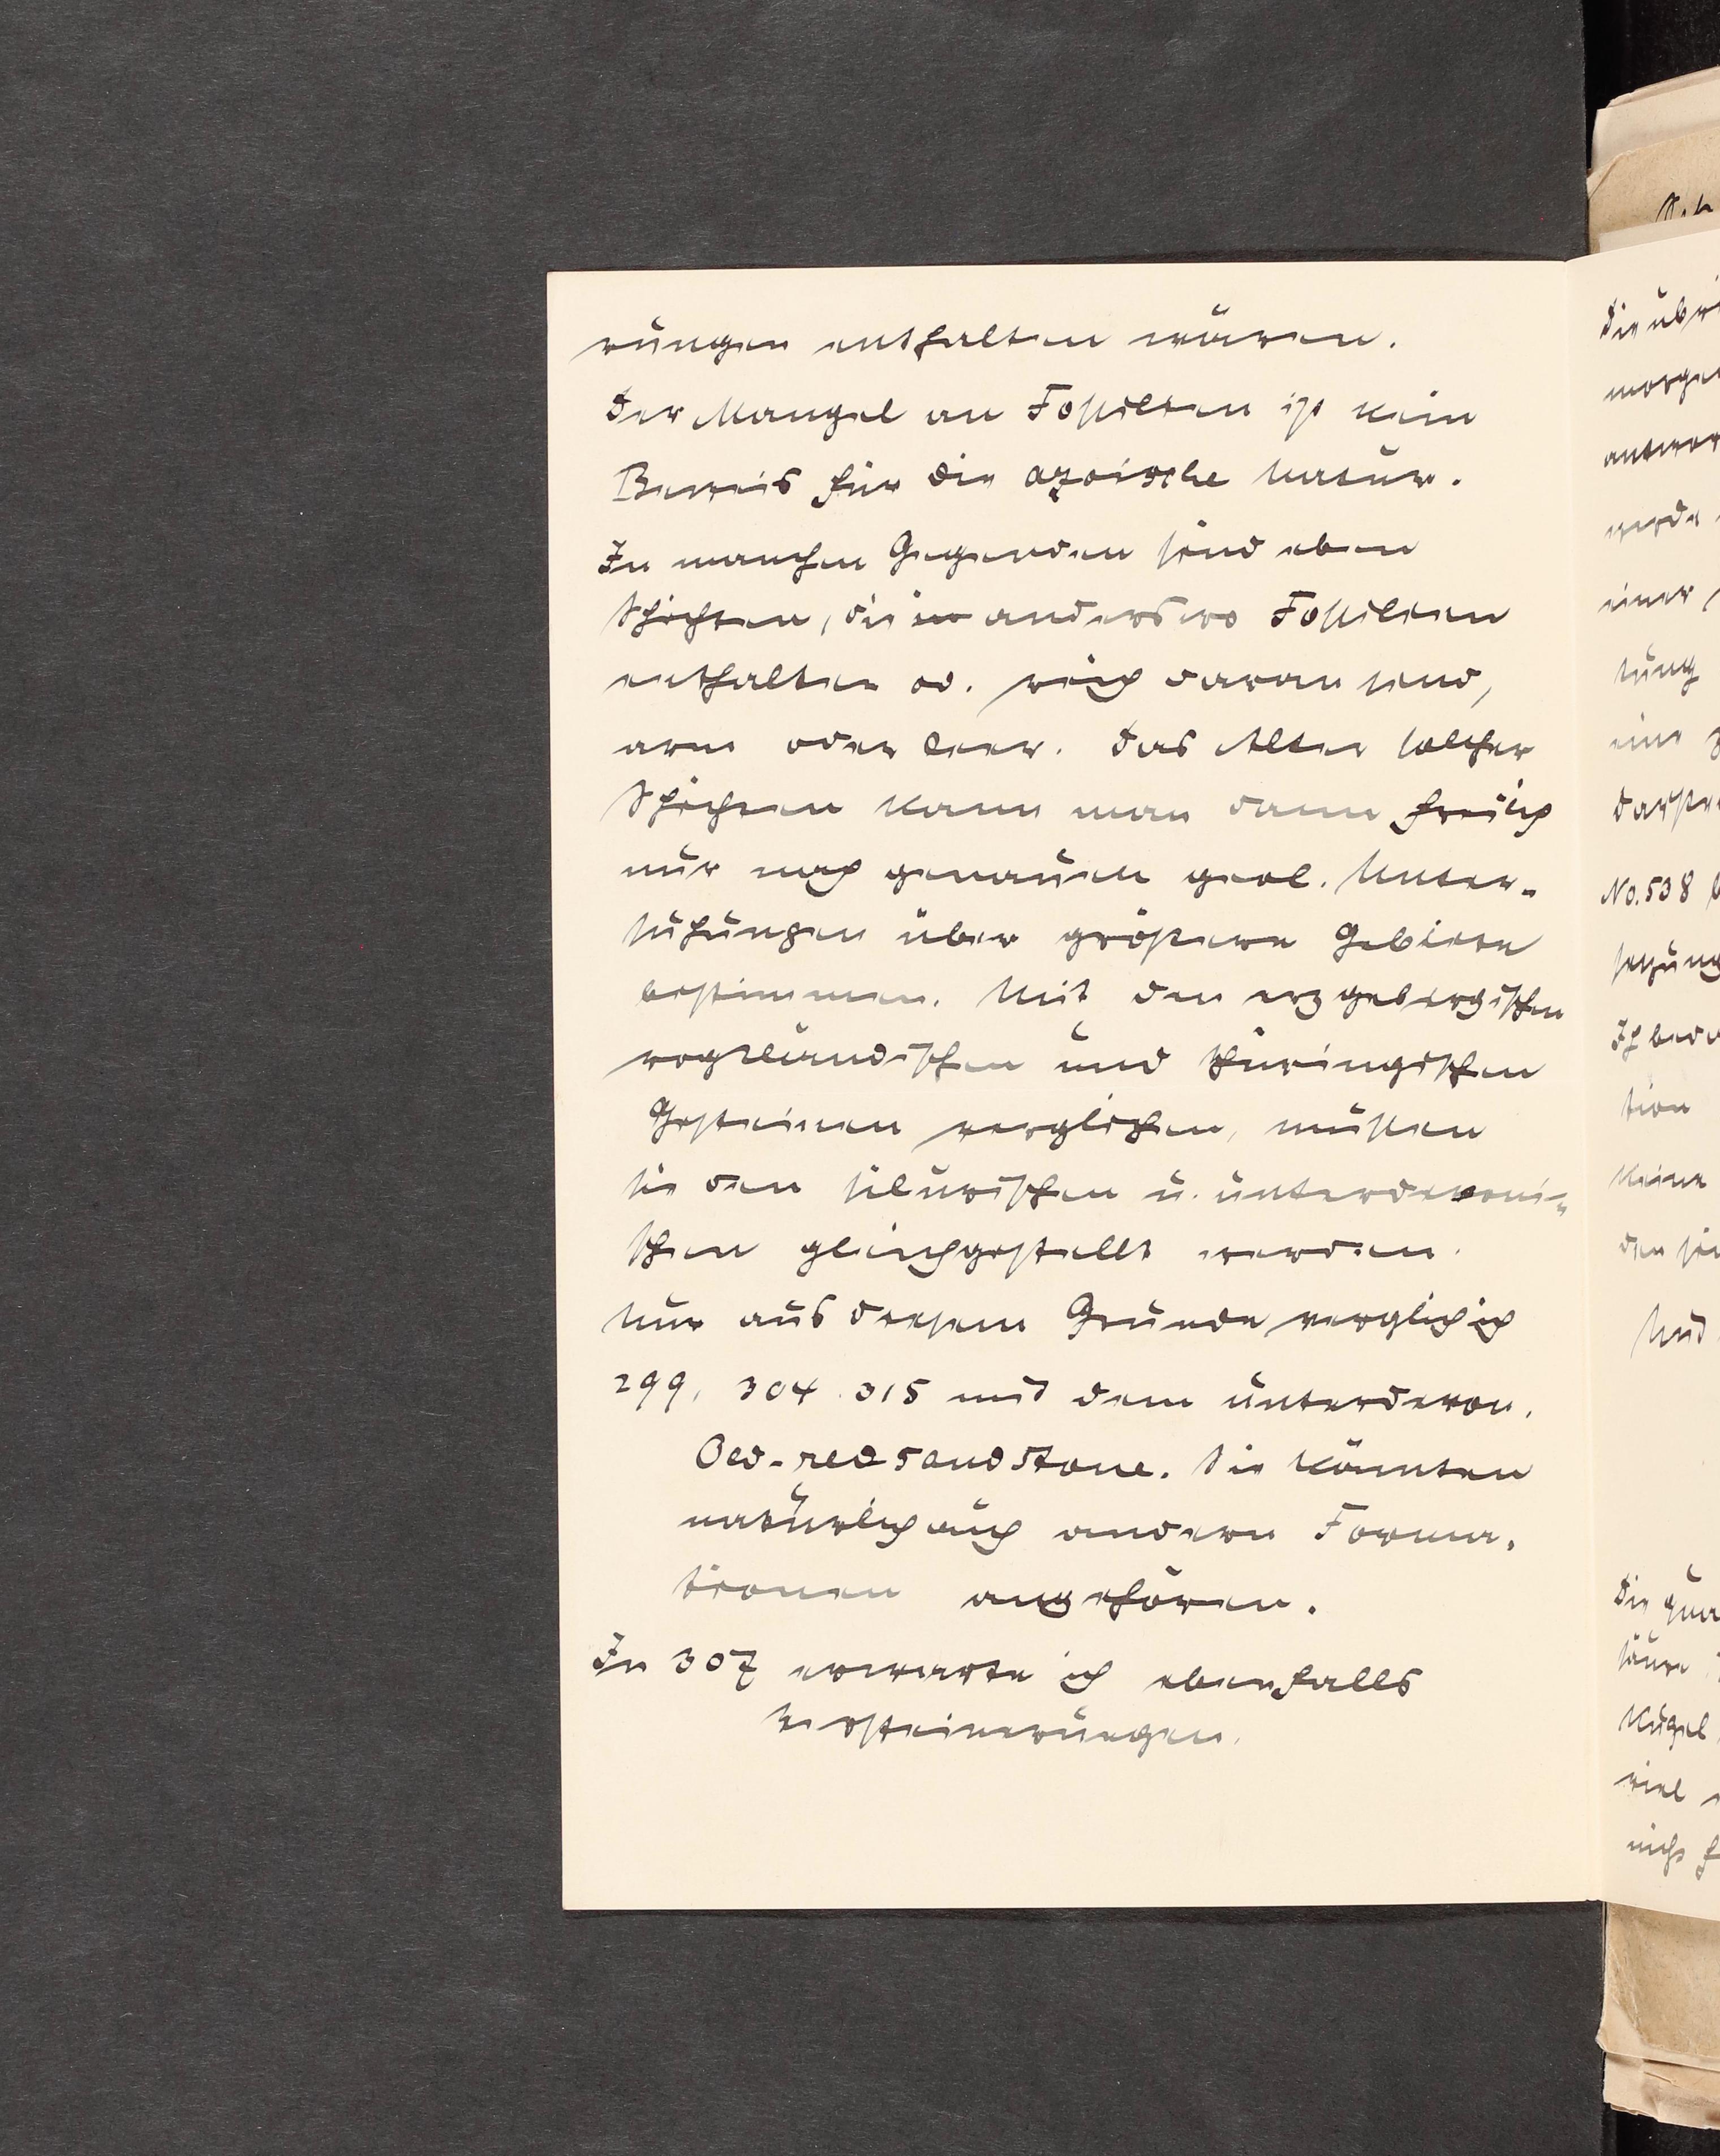 rungen enthalten wären.
Der Mangel an Fossilien ist kein
Beweis für die azoische Natur.
In manchen Gegenden sind eben
Schichten, die anderswo Fossilien
enthalten od. reich daran sind,
arm oder leer. Das Alter solcher
Schichten kann man dann freilich
nur nach genauen geol. Unter-
suchungen über größere Gebiete
bestimmen. Mit den erzgebirgischen
vogtländischen und thüringischen
Gesteinen verglichen, müssen
sie den silurischen u. unterdevoni-
schen gleichgestellt werden.
Nur aus diesem Grunde verglich ich
299, 304. 315 mit dem unterdevon.
Old-red sandstone. Sie könnten
natürlich auch andern Forma-
tionen angehören.
In 307 erwarte ich ebenfalls
Versteinerungen.
Die übri
morgen
antwor
werde
einer
tung
eine
No. 538
setzung
tion
keine
den sin
Und
Die qua
säure
Kugel
viel
nicht